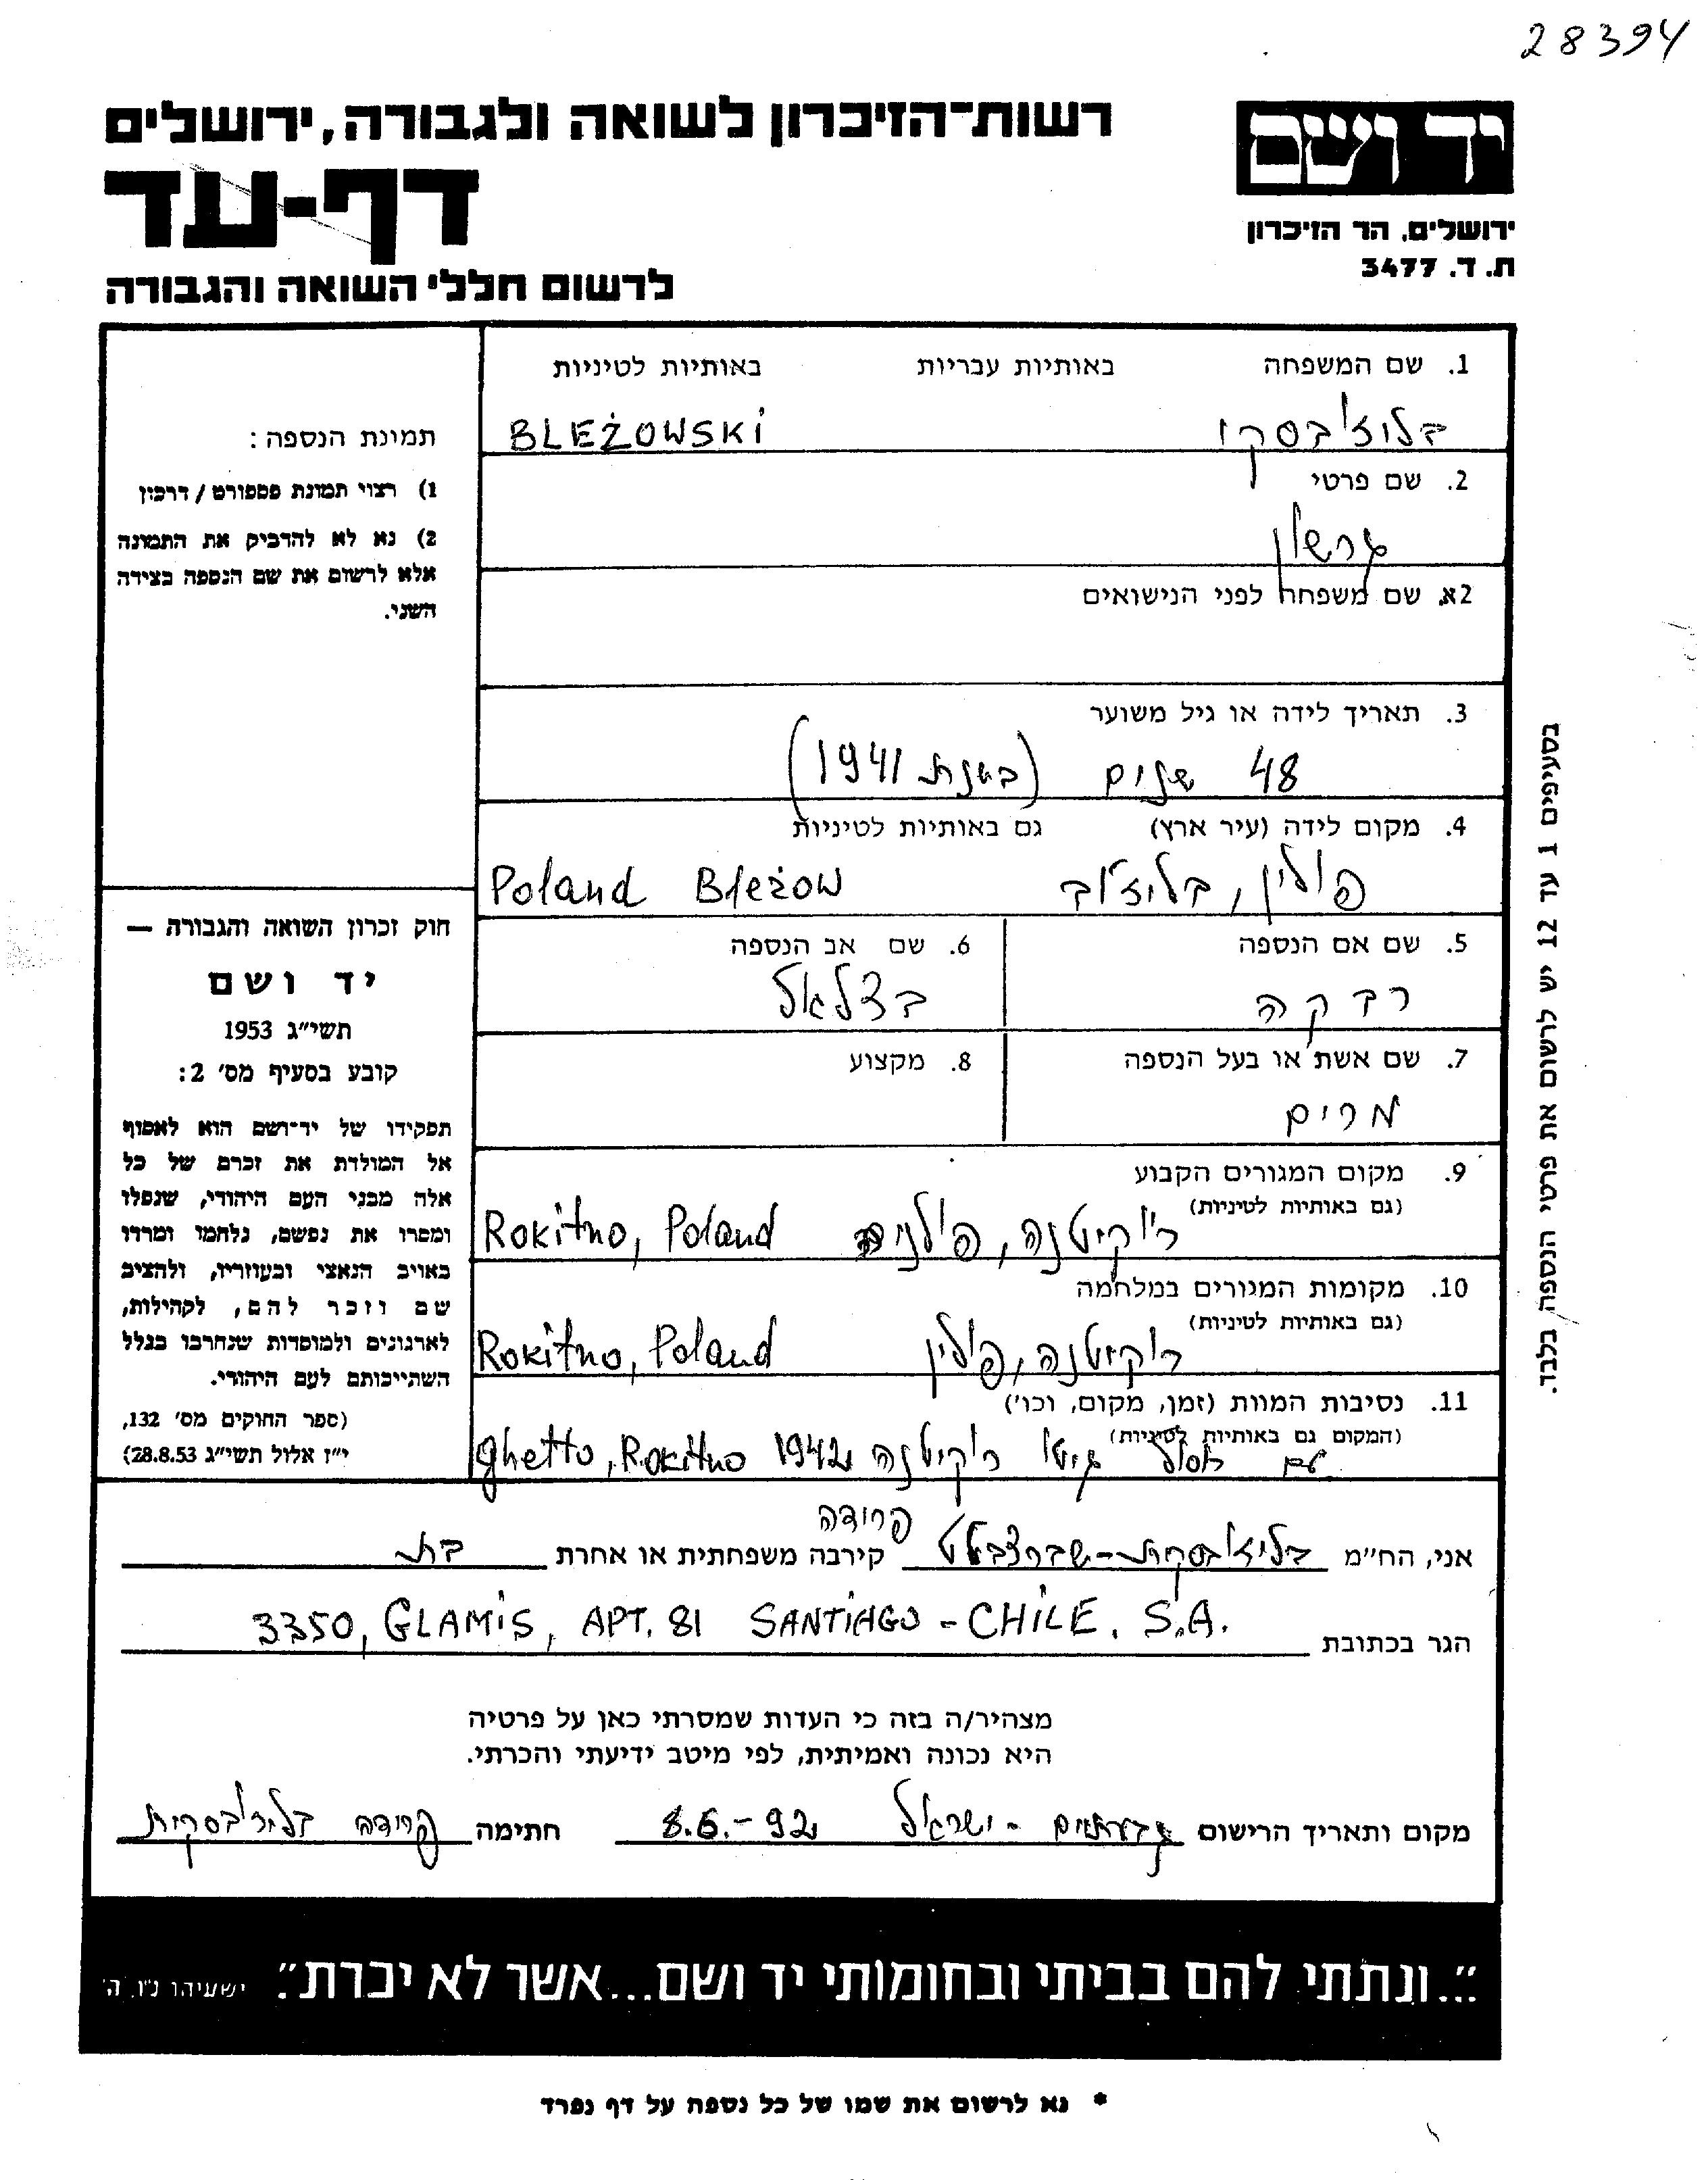 28394
רשות-הזיכרון לשואה ולגבורה, ירושלים
יד ושם
דף-עד
ירושלים, הר הזיכרון
ת. ד. 3477
לרשום חללי השואה והגבורה
1. שם המשפחה באותיות עבריות באותיות לטיניות
BLEŻOWSKI
2. שם פרטי
גרשון
2א. שם משפחה לפני הנישואים
3. תאריך לידה או גיל משוער
48 שנים (בשנת 1941)
4. מקום לידה (עיר ארץ) גם באותיות לטיניות
פולין, בליז'וב Poland Bleżow
5. שם אם הנספה 6. שם אב הנספה
רבקה בצלאל
7. שם אשת או בעל הנספה 8. מקצוע
מרים
9. מקום המגורים הקבוע
(גם באותיות לטיניות)
רוקיטנה, Rokitno, Poland
10. מקומות המגורים במלחמה
(גם באותיות לטיניות)
רוקיטנה, פולין Rokitno, Poland
11. נסיבות המוות (זמן, מקום, וכו')
(המקום גם באותיות לטיניות)
עם חסול גיטו רוקיטנה 1942 ghetto, Rokitno
תמונת הנספה:
1) רצוי תמונת פספורט / דרכון
2) נא לא להדביק את התמונה
אלא לרשום את שם הנספה בצידה
השני.
חוק זכרון השואה והגבורה —
יד ושם
תשי"ג 1953
קובע בסעיף מס' 2:
תפקידו של יד-ושם הוא לאסוף
אל המולדת את זכרם של כל
אלה מבני העם היהודי, שנפלו
ומסרו את נפשם, נלחמו ומרדו
באויב הנאצי ובעוזריו, ולהציב
שם וזכר להם, לקהילות,
לארגונים ולמוסדות שנחרבו בגלל
השתייכותם לעם היהודי.
(ספר החוקים מס' 132,
י"ז אלול תשי"ג 28.8.53)
בסעיפים 1 עד 12 יש לרשום את פרטי הנספה בלבד.
פרודה
אני, הח"מ קירבה משפחתית או אחרת בת
הגר בכתובת 3350, GLAMIS, APT. 81 SANTIAGO - CHILE, S.A.
מצהיר/ה בזה כי העדות שמסרתי כאן על פרטיה
היא נכונה ואמיתית, לפי מיטב ידיעתי והכרתי.
מקום ותאריך הרישום גבעתיים - ישראל 8.6.-92 חתימה פרודה
"...ונתתי להם בביתי ובחומותי יד ושם...אשר לא יכרת". ישעיהו נ"ו, ה'
* נא לרשום את שמו של כל נספה על דף נפרד